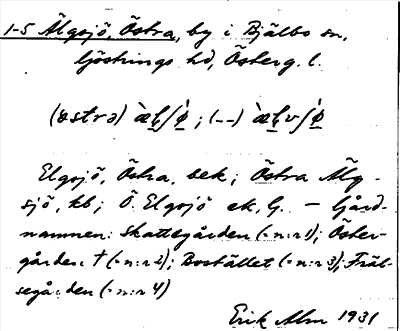 1-5 Älgsjö, Östra, by i Bjälbo sn,
Göstrings hd, Österg. l.
(östrə) `æḷʃø̀ ; (--) `æḷvʃø̀
Elgsjö, Östra, bek; Östra Älg-
sjö, kb; Ö. Elgsjö ek, G. – Gård-
namnen: Skattegården (=n:r 1); Öster-
gården † (=n:r 2); Bostället (=n:r 3); Fräl-
segården (=n:r 4)
Erik Alm 1931